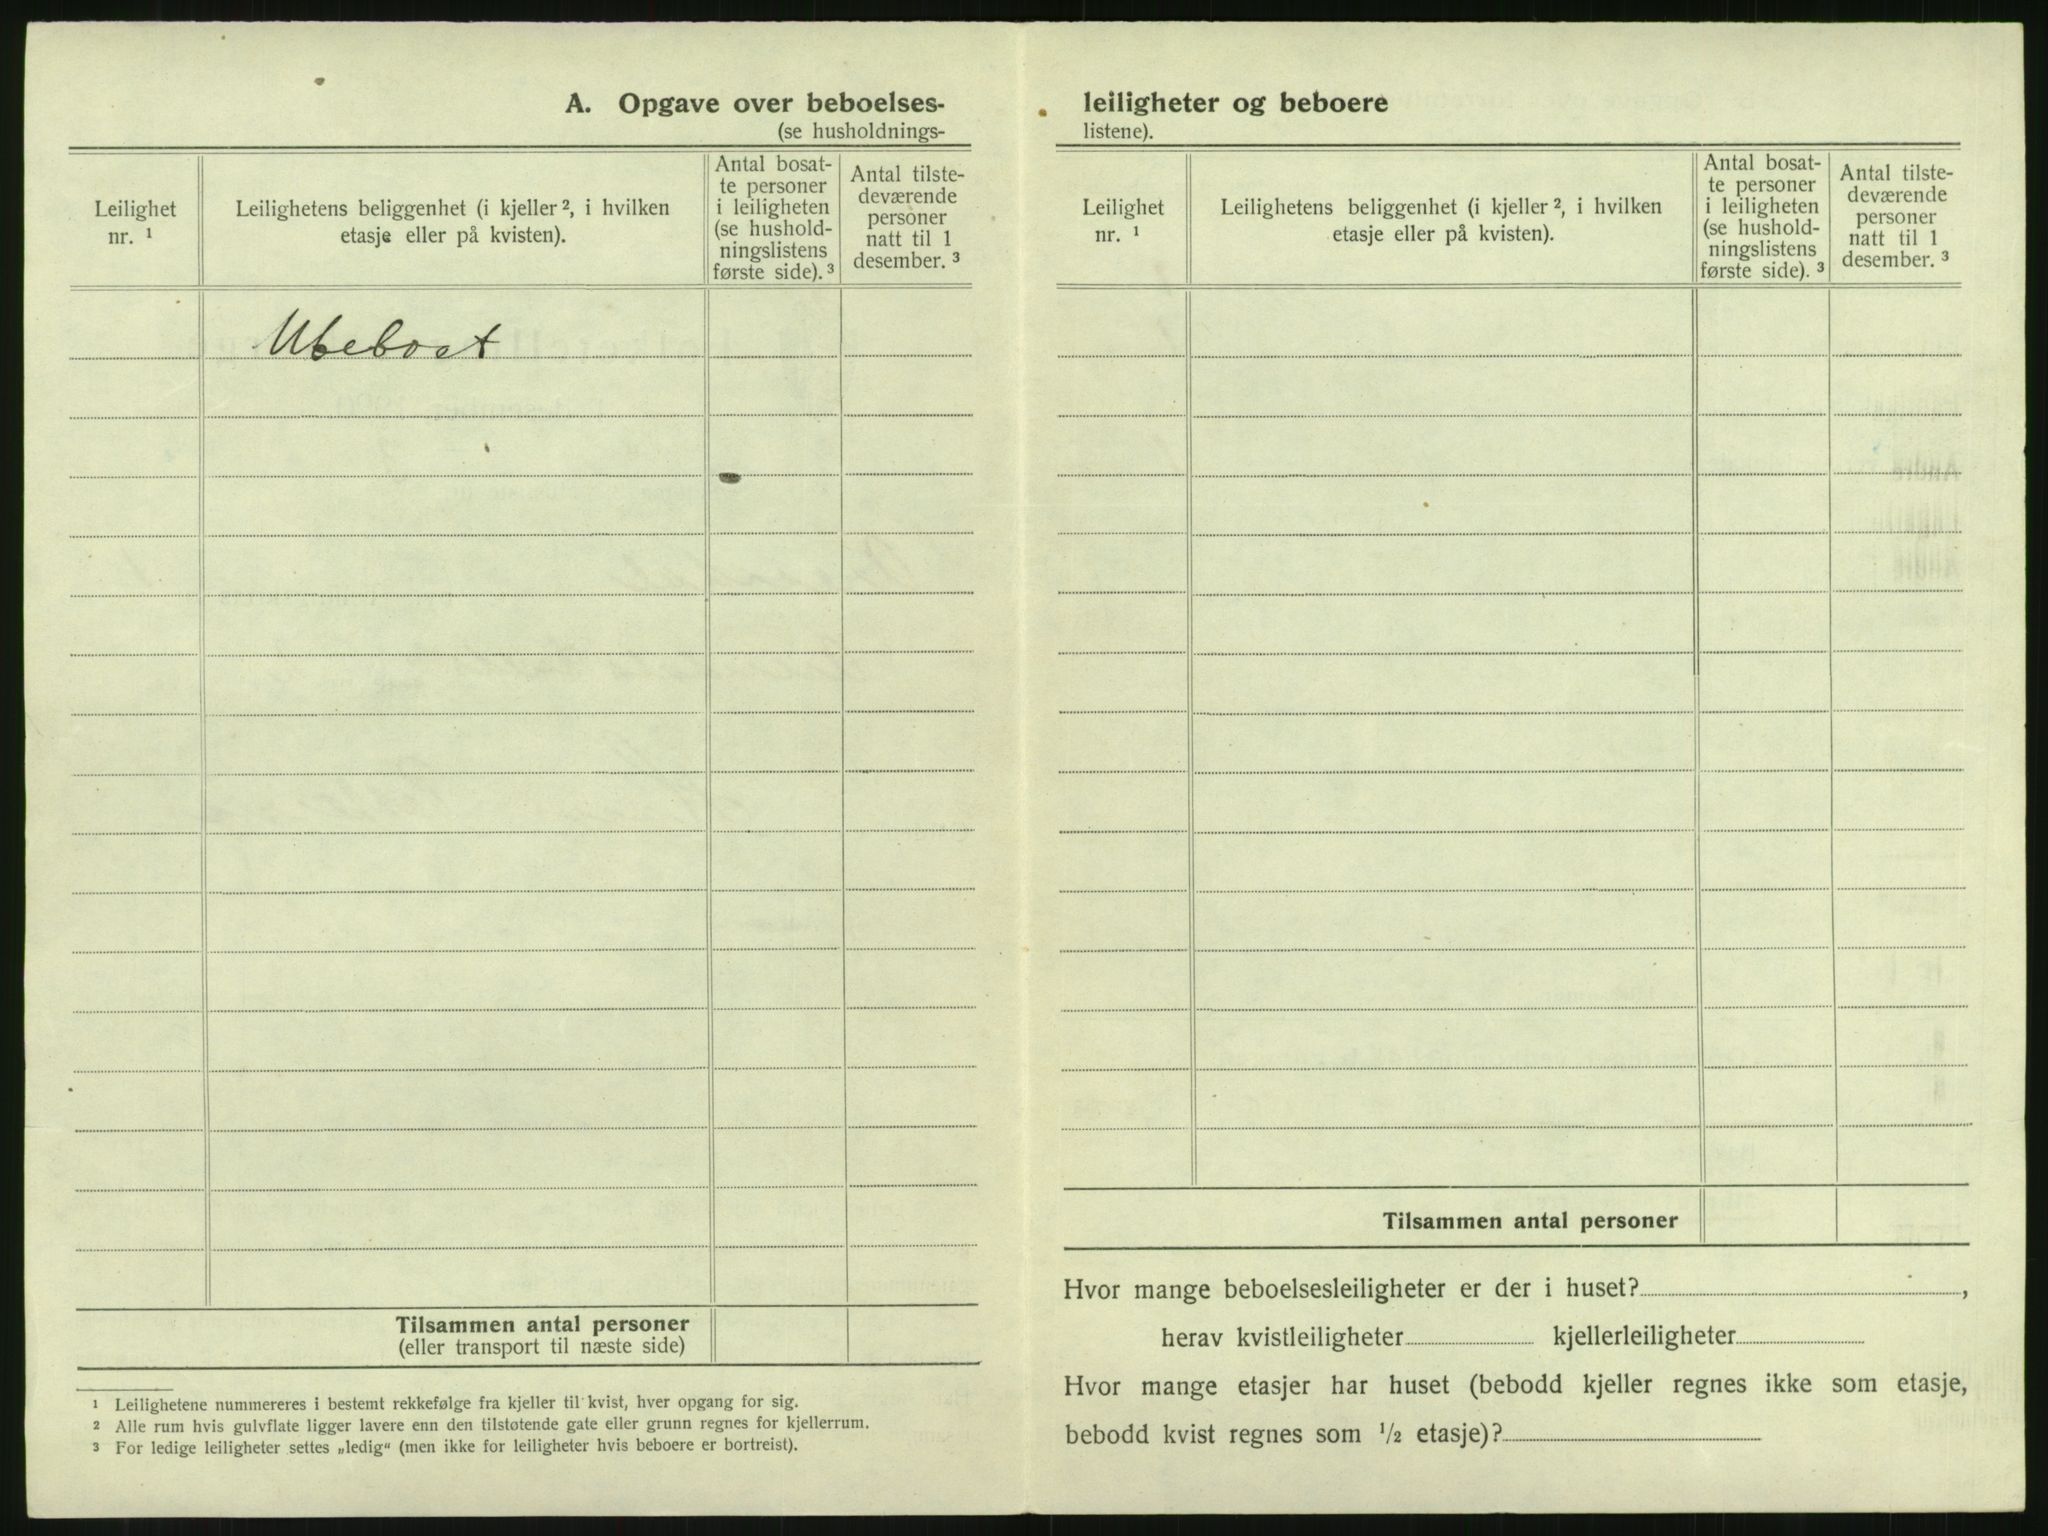 A. Opgave over beboelses-
(se husholdnings-
Leilighet
nr. ¹
Leilighetens beliggenhet (i kjeller ², i hvilken
etasje eller på kvisten).
Antal bosat-
te personer
i leiligheten
(se hushold-
ningslistens
første side). ³
Antal tilste-
deværende
personer
natt til 1
desember. ³
Ubeboet
Tilsammen antal personer
(eller transport til næste side)
¹ Leilighetene nummereres i bestemt rekkefølge fra kjeller til kvist, hver opgang for sig.
² Alle rum hvis gulvflate ligger lavere enn den tilstøtende gate eller grunn regnes for kjellerrum.
³ For ledige leiligheter settes „ledig“ (men ikke for leiligheter hvis beboere er bortreist).
leiligheter og beboere
listene).
Leilighet
nr. ¹
Leilighetens beliggenhet (i kjeller ², i hvilken
etasje eller på kvisten).
Antal bosat-
te personer
i leiligheten
(se hushold-
ningslistens
første side). ³
Antal tilste-
deværende
personer
natt til 1
desember. ³
Tilsammen antal personer
Hvor mange beboelsesleiligheter er der i huset? ,
herav kvistleiligheter kjellerleiligheter
Hvor mange etasjer har huset (bebodd kjeller regnes ikke som etasje,
bebodd kvist regnes som ½ etasje)?